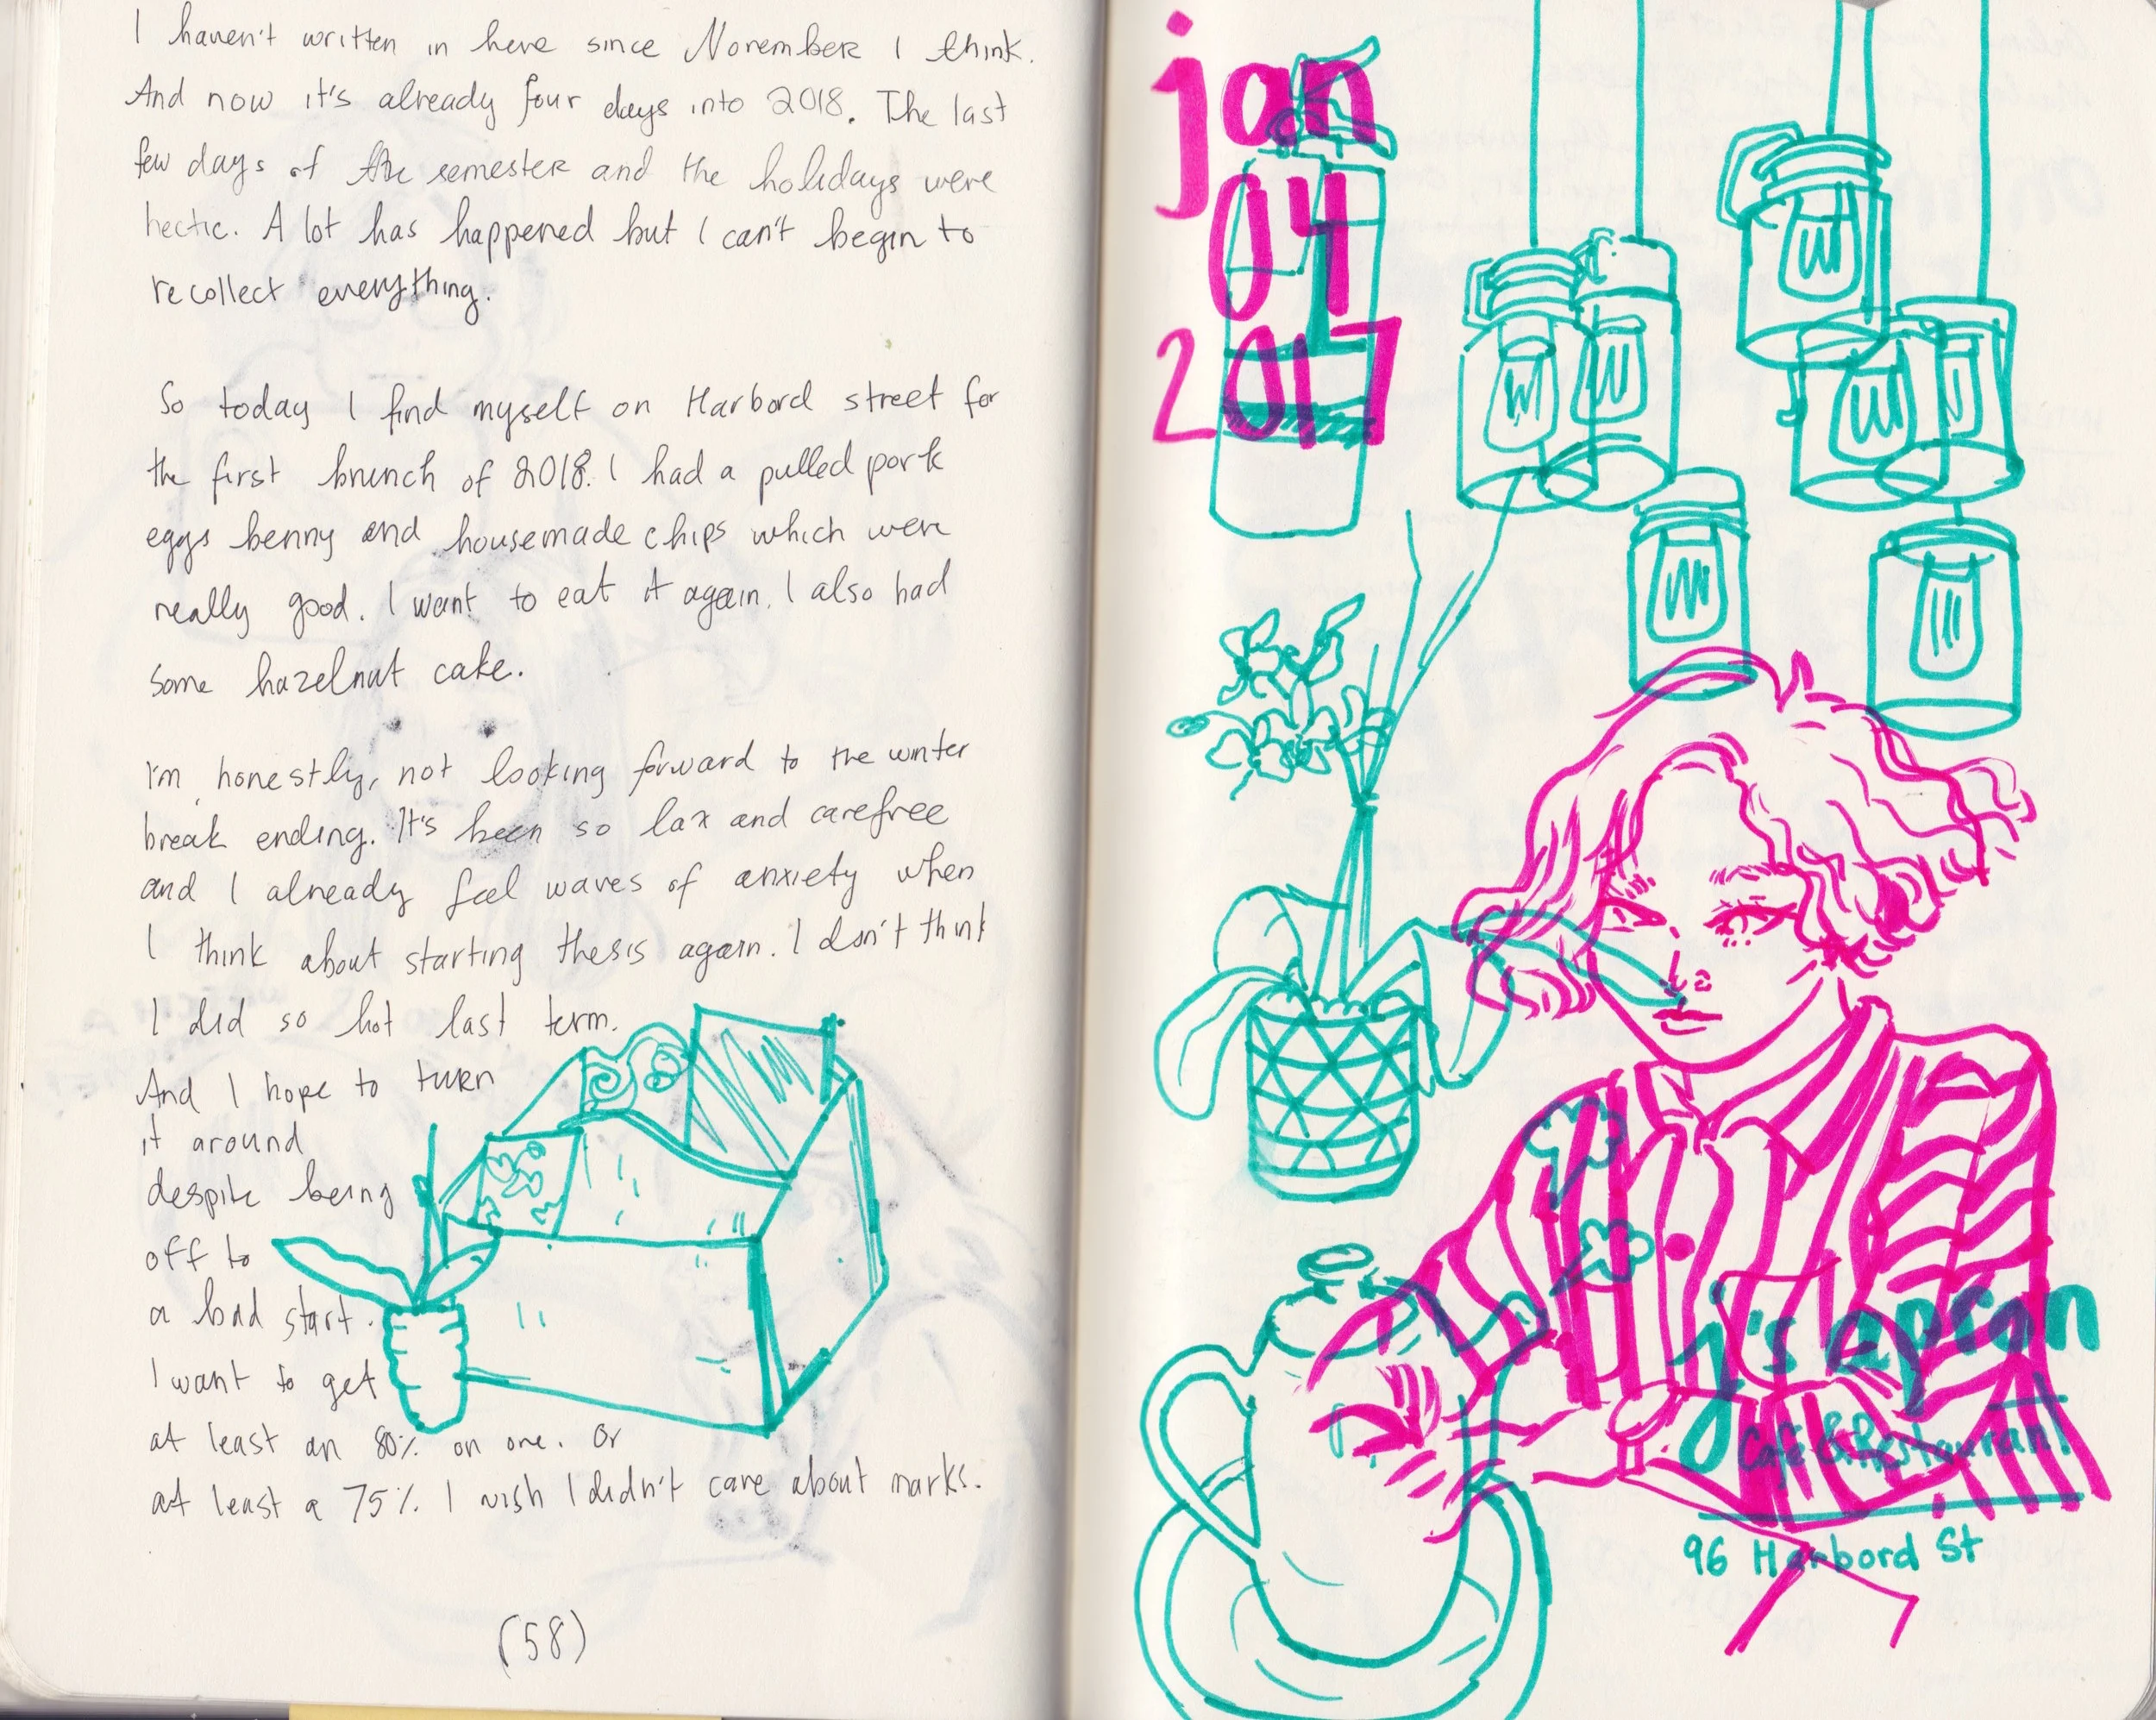 I haven't written in here since November I think.
And now it's already four days into 2018. The last
few days of the semester and the holidays were
hectic. A lot has happened but I can't begin to
recollect everything.
So today I find myself on Harbord street for
the first brunch of 2018. I had a pulled pork
eggs benny and housemade chips which were
really good. I want to eat it again. I also had
some hazelnut cake.
I'm honestly, not looking forward to the winter
break ending. It's been so lax and carefree
and I already feel waves of anxiety when
I think about starting thesis again. I don't think
I did so hot last term.
And I hope to turn
it around
despite being
off to
a bad start.
I want to get
at least an 80% on one. Or
at least a 75%. I wish I didn't care about marks.
(58)
jan
04
2017
j's apron
Café & Restaurant
96 Harbord St